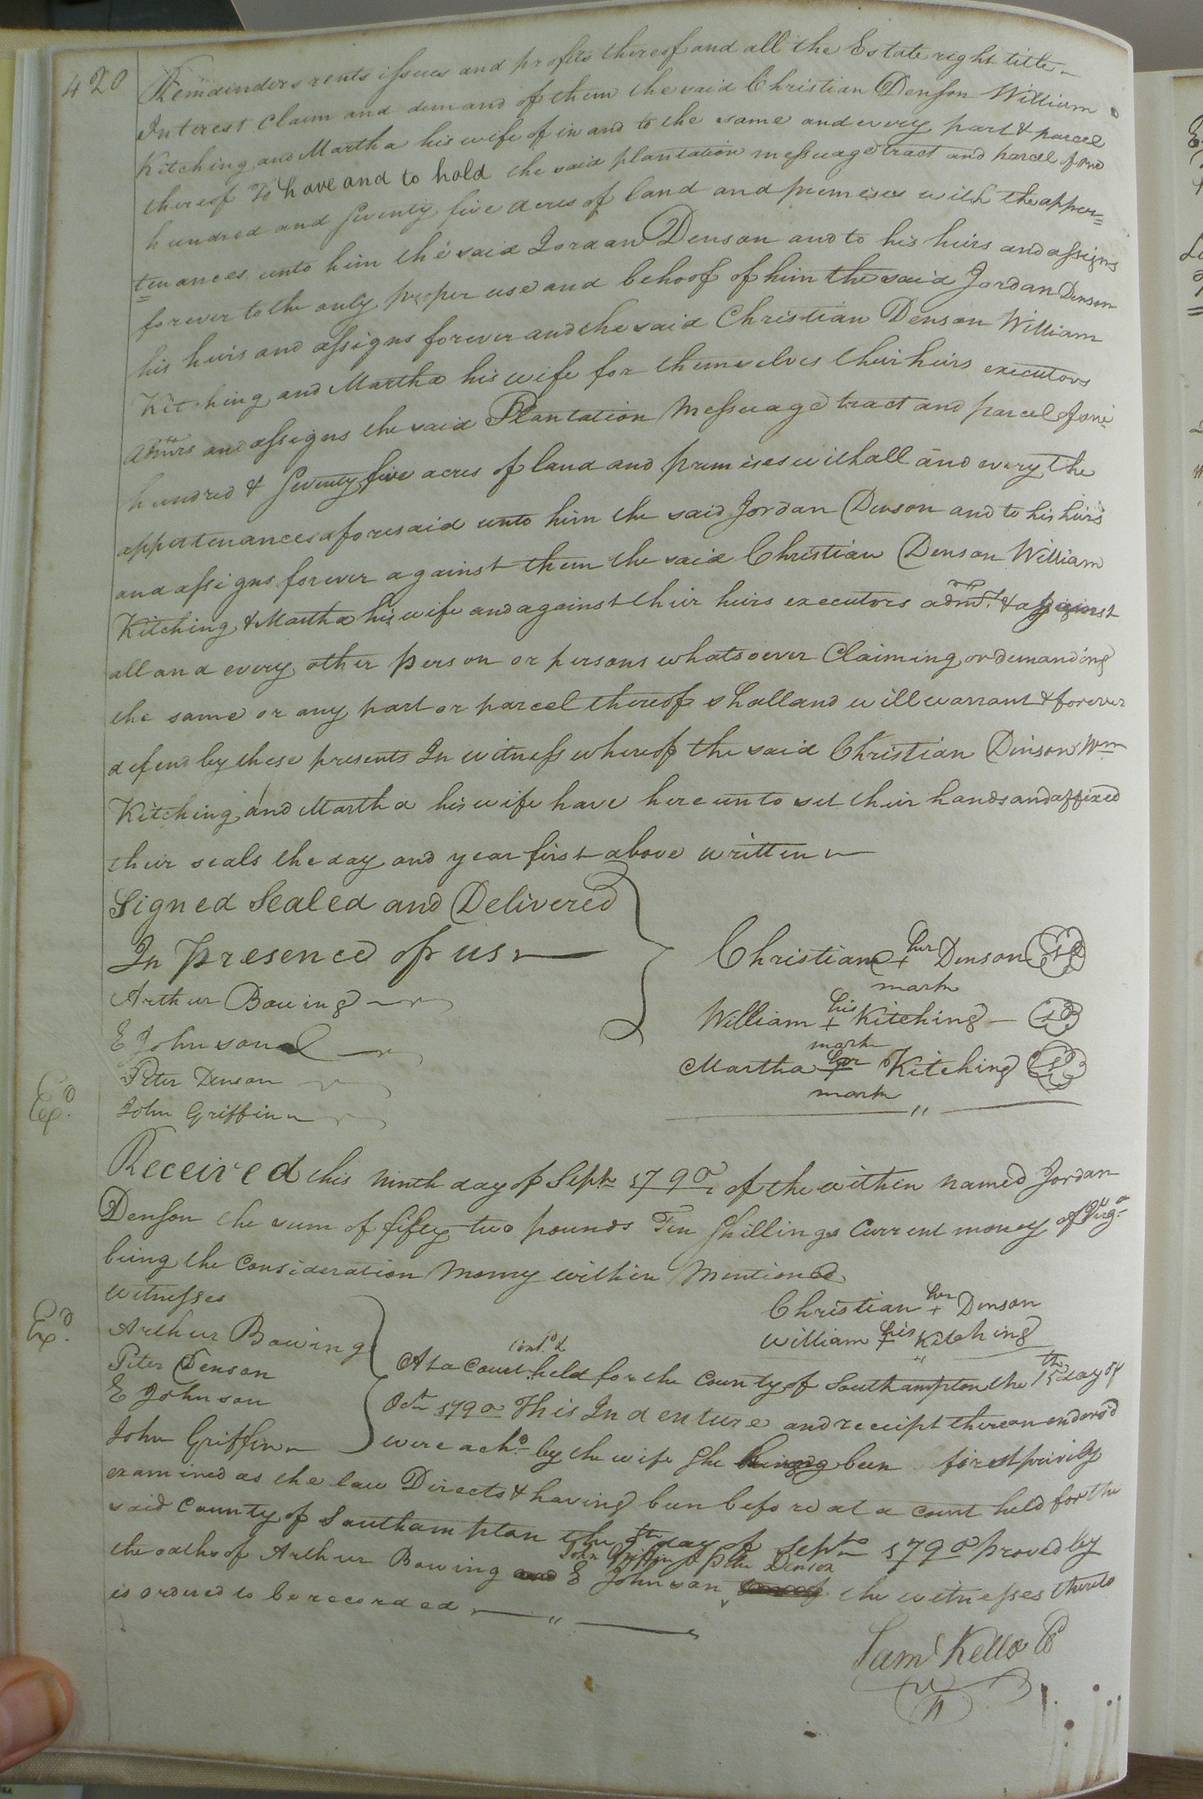 420
Remainders rents issues and profits thereof and all the Estate right title
Interest Claim and demand of them the said Christian Denson William
Kitching and Martha his wife of in and to the same and every part & parcel
thereof To have and to hold the said plantation messuage tract and parcel of one
hundred and Seventy five acres of land and premises with the appur=
=tenances unto him the said Jordan Denson and to his heirs and assigns
forever to the only proper use and behoof of him the said Jordan Denson
his heirs and assigns forever and the said Christian Denson William
Kitching and Martha his wife for themselves their heirs executors
admrs and assigns the said Plantation Messuage tract and parcel of one
hundred & Seventy five acres of land and premises with all and every the
appertenances aforesaid unto him the said Jordan Denson and to his heirs
and assigns forever against them the said Christian Denson William
Kitching & Martha his wife and against their heirs executors admrs. & against
all and every other person or persons whatsoever Claiming or demanding
the same or any part or parcel thereof shall and will warrant & forever
defend by these presents In witness whereof the said Christian Denson Wm
Kitching and Martha his wife have hereunto set their hands and affixed
their seals the day and year first above written
Signed Sealed and Delivered
In presence of us
Arthur Bowing
E Johnson
Peter Denson
Exd.
John Griffin
Christian her + Denson
mark
William his + Kitching
mark
Martha her + Kitching
mark
Received this ninth day of Septr 1790, of the within named Jordan
Denson the sum of fifty two pounds Ten Shillings Current money of Virga
being the Consideration Money within Mentioned
Witnesses
Arthur Bowing
Exd.
Peter Denson
E Johnson
John Griffin
Christian her + Denson
William his + Kitching
At a Court contd held for the County of Southampton the 15th day of
Octr 1790 This Indenture and receipt thereon endorsd
were ackd by the wife She being been first privily
examined as the law Directs & having been before at a Court held for the
said County of Southampton the 9th day of Septr 1790 proved by
the oaths of Arthur Bowing and E Johnson, John Griffin & Peter Denson the witnesses thereto
is ordered to be recorded
Saml Kello Cl